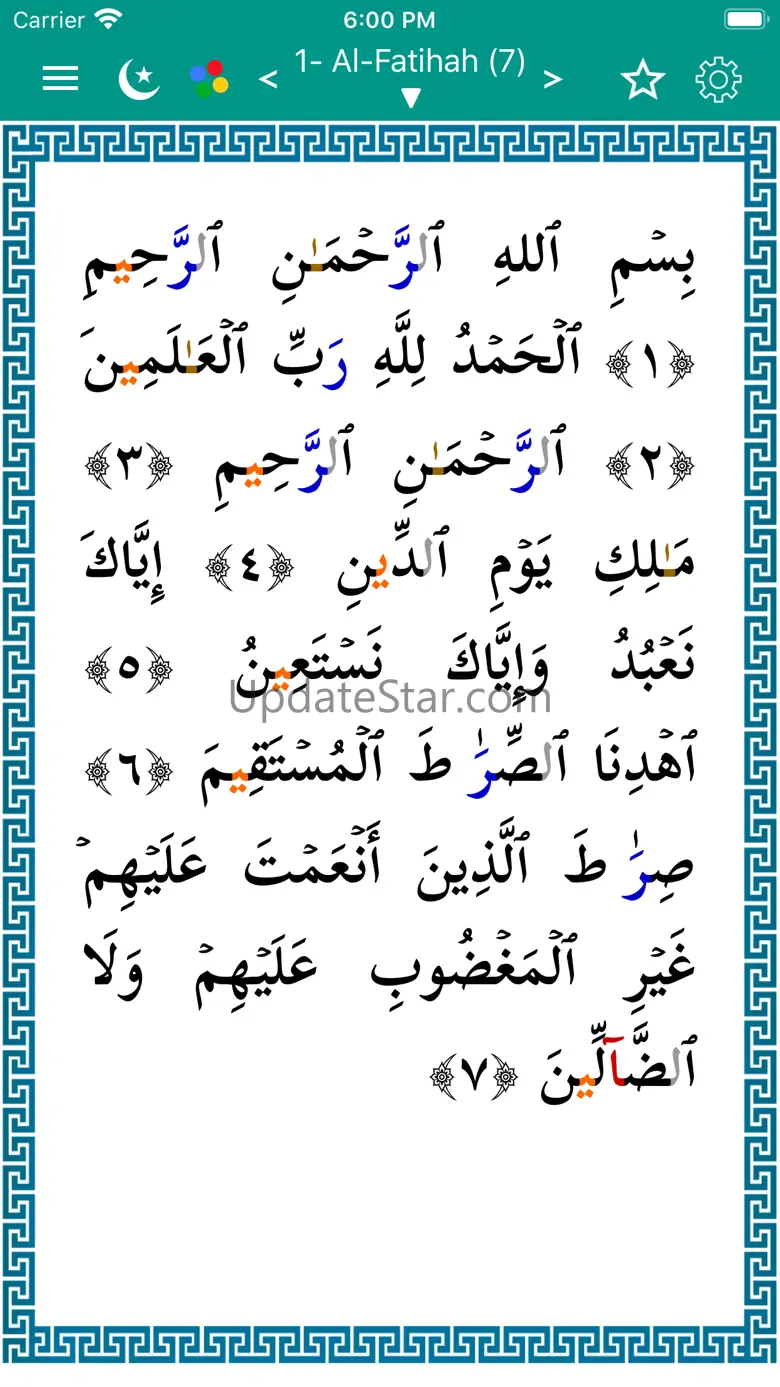 Carrier 6:00 PM
1- Al-Fatihah (7)
< >
بِسۡمِ ٱللهِ ٱلرَّحۡمَـٰنِ ٱلرَّحِيمِ
﴿١﴾ ٱلۡحَمۡدُ لِلَّهِ رَبِّ ٱلۡعَـٰلَمِينَ
﴿٢﴾ ٱلرَّحۡمَـٰنِ ٱلرَّحِيمِ ﴿٣﴾
مَـٰلِكِ يَوۡمِ ٱلدِّينِ ﴿٤﴾ إِيَّاكَ
نَعۡبُدُ وَإِيَّاكَ نَسۡتَعِينُ ﴿٥﴾
UpdateStar.com
ٱهۡدِنَا ٱلصِّرَٰطَ ٱلۡمُسۡتَقِيمَ ﴿٦﴾
صِرَٰطَ ٱلَّذِينَ أَنۡعَمۡتَ عَلَيۡهِمۡ
غَيۡرِ ٱلۡمَغۡضُوبِ عَلَيۡهِمۡ وَلَا
ٱلضَّآلِّينَ ﴿٧﴾